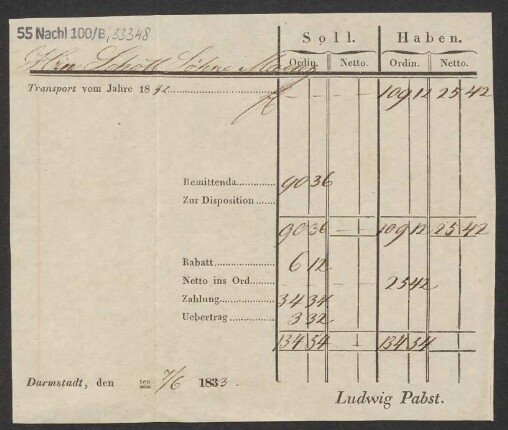 55 Nachl 100/B, 33348
Soll. Haben.
Hrn. Schott Söhne Mainz
Ordin. Netto. Ordin. Netto.
Transport vom Jahre 1832 - - - - 109 12 25 42
Remittenda 90 36
Zur Disposition
90 36 - - 109 12 25 42
Rabatt 6 12
Netto ins Ord 25 42
Zahlung 34 34
Uebertrag 3 32
134 54 - - 134 54
Darmstadt, den ten 7/6 1833.
Ludwig Pabst.